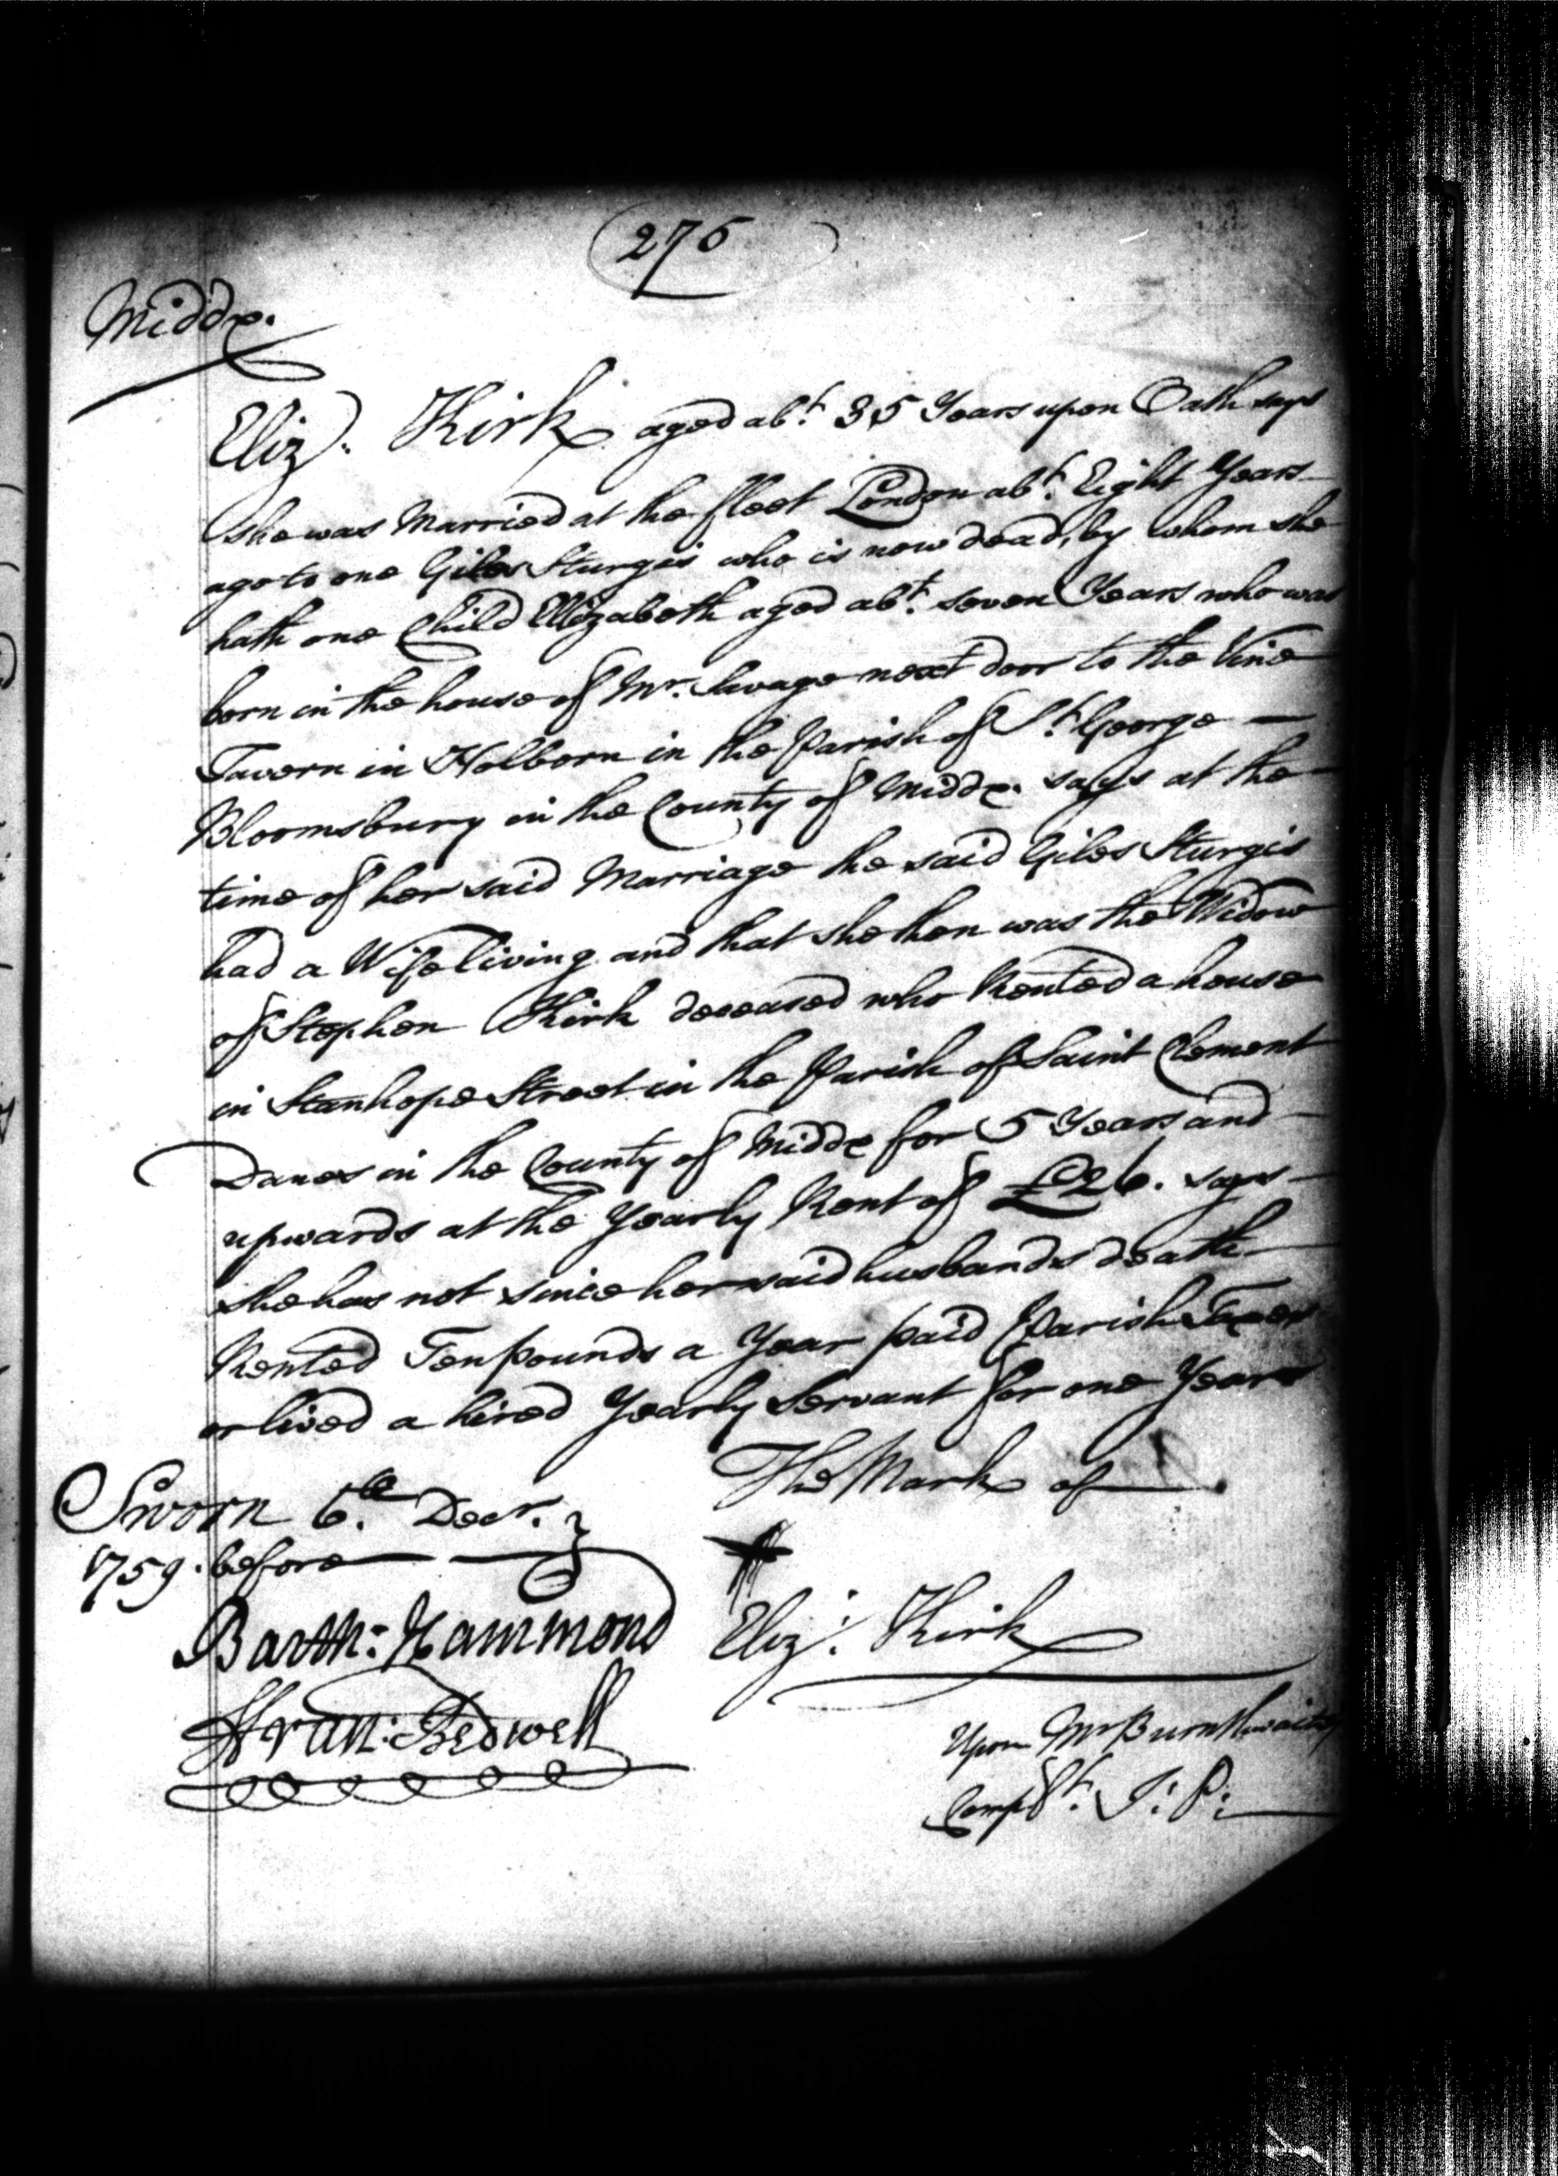 276
Middx.
Eliz. Kirk aged abt. 35 Years upon Oath says
she was Married at the fleet London abt. Eight Years
ago to one Giles Sturgis who is now dead, by whom she
hath one Child Elizabeth aged abt. seven Years who was
born in the house of Mr. Savage next door to the Vine
Tavern in Holborn in the Parish of St. George —
Bloomsbury in the County of Middx. says at the
time of her said Marriage the said Giles Sturgis
had a Wife living and that she then was the Widow
of Stephen Kirk deceased who Rented a house
in Stanhope Street in the Parish of Saint Clement
Danes in the County of Middx for 5 Years and
upwards at the Yearly Rent of £26. says
she has not since her said husbands death
Rented Ten pounds a Year paid Parish Taxes
or lived a hired Yearly Servant for one Year
The Mark of
Sworn 6th. Decr.
1759. before
Barth: Hammond
Eliz: Kirk
Fran: Bedwell
Upon Mr Burnthwaites
Complt. J: P: